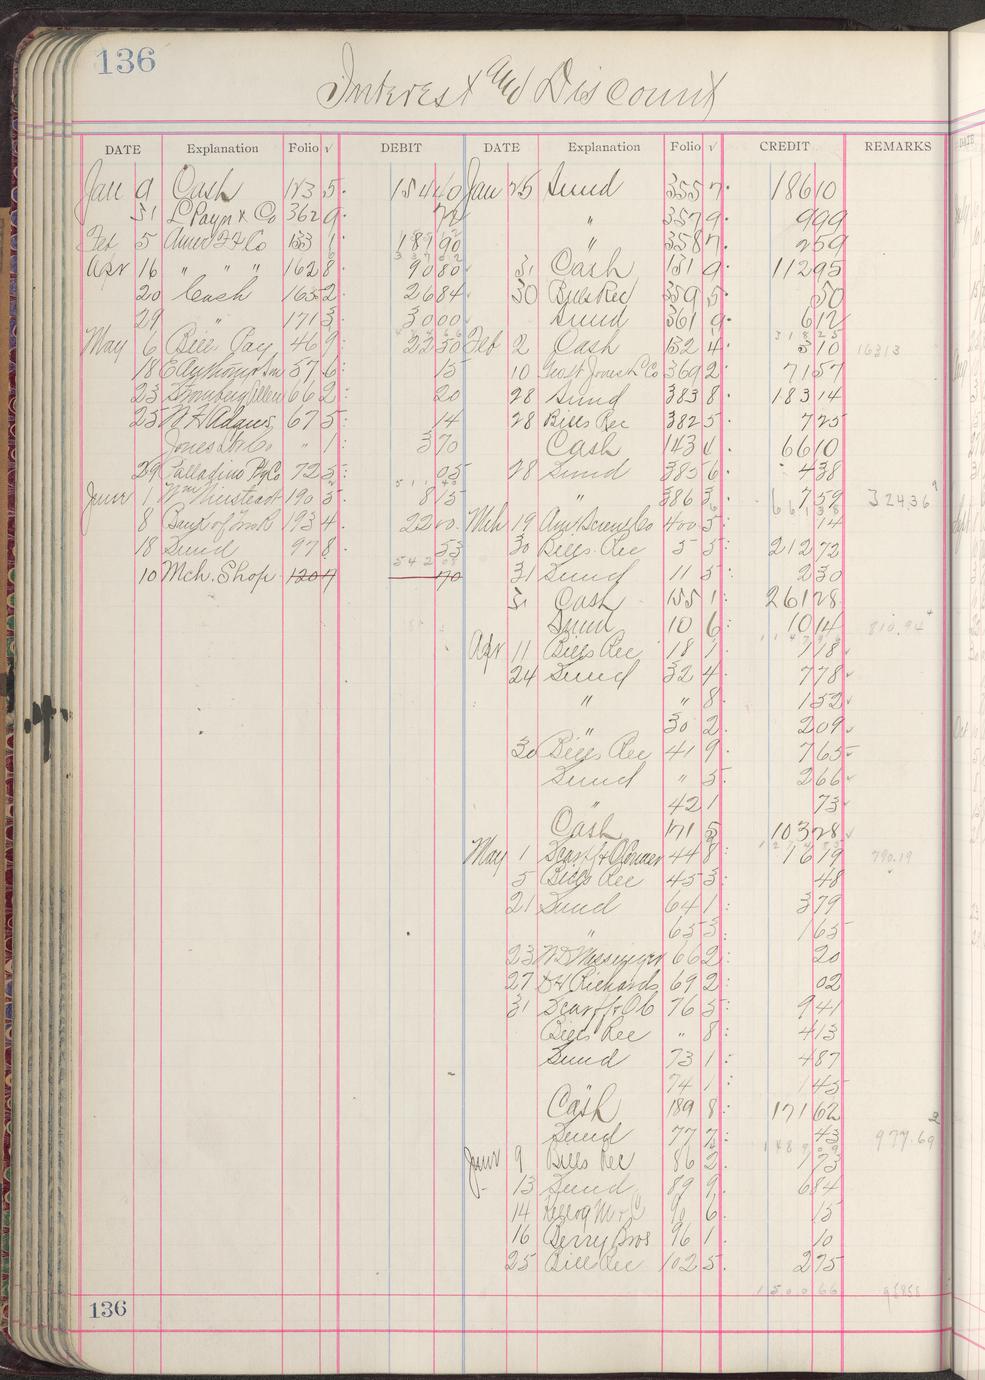 136
Interest and Discount
DATE Explanation Folio √ DEBIT DATE Explanation Folio √ CREDIT REMARKS
Jan 9 Cash 183 5 154 40 Jan 25 Sund 355 7 186 10
31 L Payn & Co 362 9 72 " 357 9 9 99
Feb 5 Amer 133 1 189 90 " 358 7 2 59
Apr 16 " " " 162 8 90 80 31 Cash 131 9 112 95
20 Cash 165 2 26 84 30 Bills Rec 359 5 50
29 " 171 3 30 00 Sund 361 9 6 12
May 6 Bill Pay 46 9 22 50 Feb 2 Cash 132 4 3 10 163 13
18 57 6 15 10 Co 369 2 71 57
23 66 2 20 28 Sund 383 8 183 14
25 N H Adams 67 5 14 28 Bills Rec 382 5 7 25
Jones " 1 3 70 Cash 143 4 66 10
29 Palladino Co 72 5 05 28 Sund 385 6 4 38
June 1 Wm 190 5 8 15 " 386 3 7 59 324.36
8 Bank of 193 4 22 00 Mch 19 Am Co 400 5 14
18 Sund 97 8 53 30 Bills Rec 5 5 212 72
542 03
10 Mch. Shop 120 7 70 31 Sund 11 5 2 30
31 Cash 155 1 261 28
Sund 10 6 10 14 810.94
Apr 11 Bills Rec 18 7 7 18
24 Sund 32 4 7 78
" " 8 1 52
" 30 2 2 09
30 Bills Rec 41 9 7 65
Sund " 5 2 66
" 42 1 73
Cash 171 5 103 28
May 1 Scarff & O'Connor 44 8 16 19 790.19
5 Bills Rec 45 3 48
21 Sund 64 1 3 79
" 65 5 1 65
23 66 2 20
27 Richards 69 2 02
31 Scarff & O'C 76 5 9 41
Bills Rec " 8 4 13
Sund 73 1 4 87
" 74 1 1 45
Cash 189 8 171 62
Sund 77 7 43 977.69
June 9 Bills Rec 86 2 1 73
13 Sund 89 9 6 84
14 Kellog 90 6 15
16 Berry Bros 96 1 10
25 Bill Rec 102 5 2 75
1500 66
136